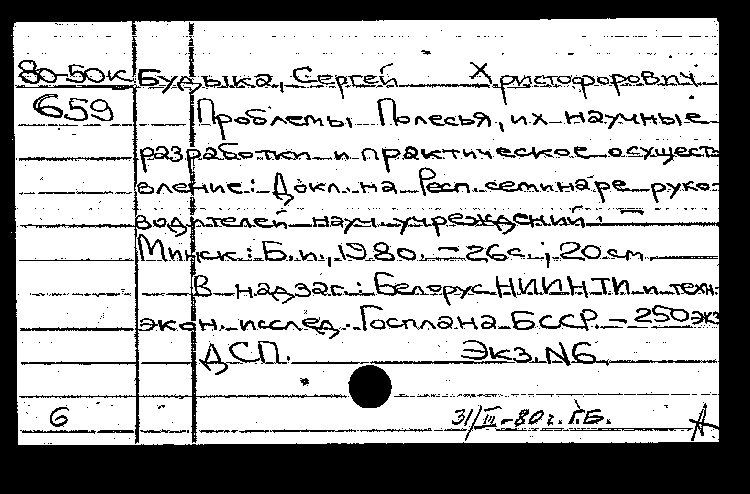 80-50к Будыка, Сергей Христофорович
659 Проблемы Полесья, их научные
разработки и практическое осущест
вление: Докл. на Респ. семинаре руко-
водителей науч. учреждений. —
Минск: Б. и., 1980. — 26с.; 20см.
В надзаг.: Белорус НИИНТИ и техн.-
экон. исслед. Госплана БССР. — 250экз
ДСП. Экз. N6.
6 31/III-80г. Г.Б. А